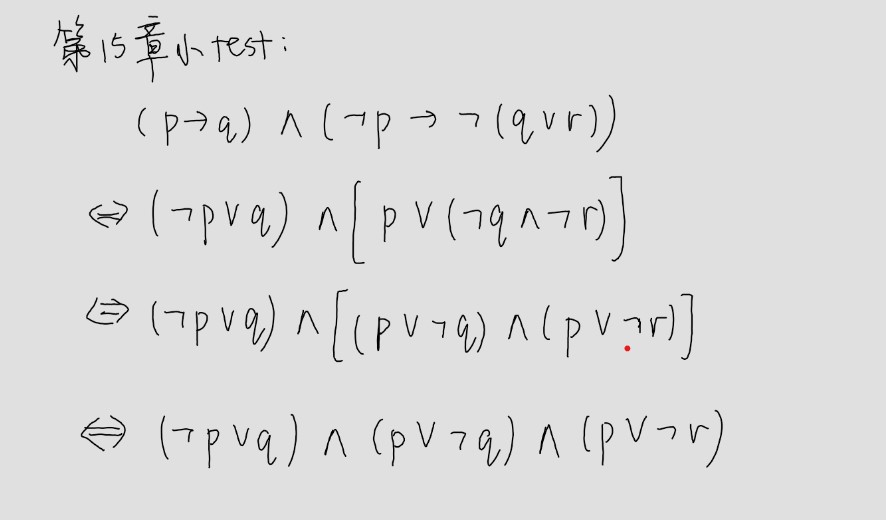 第15章小test:
(p→q) ∧ (¬p → ¬(q∨r))
⇔ (¬p∨q) ∧ [p ∨ (¬q∧¬r)]
⇔ (¬p∨q) ∧ [(p∨¬q) ∧ (p∨¬r)]
⇔ (¬p∨q) ∧ (p∨¬q) ∧ (p∨¬r)